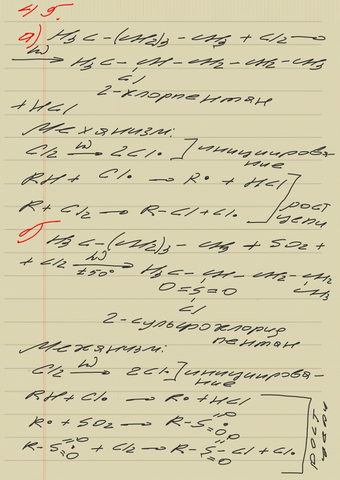 4 г.
а) H3C-(CH2)3-CH3 + Cl2 →
hν → H3C-CH-CH2-CH2-CH3
Cl
2-хлорпентан
+ HCl
Механизм:
Cl2 hν → 2Cl• ] инициирова-
ние
RH + Cl• → R• + HCl
R + Cl2 → R-Cl + Cl• ] рост цепи
б) H3C-(CH2)3-CH3 + SO2 +
+ Cl2 hν → ±50° H3C-CH-CH2-CH2
O=S=O CH3
Cl
2-сульфохлорид
пентан
Механизм:
Cl2 hν → 2Cl• ] инициирова-
ние
RH + Cl• → R• + HCl
R• + SO2 → R-S=O =O
R-S=O =O + Cl2 → R-S-Cl + Cl• =O =O
рост цепи